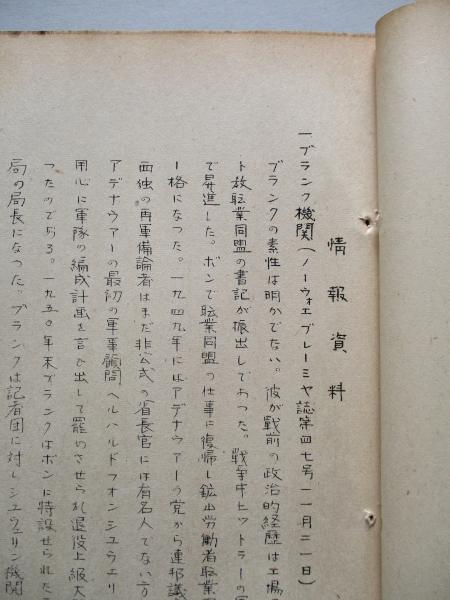 情報資料
一ブランク機関(ノーウォエブレーミヤ誌第四七号一一月二一日)
ブランクの素性は明かでない。彼が戦前の政治的経歴は工場
ト放転業同盟の書記が振出しであつた。戦争中ヒットラーの
で昇進した。ボンで転業同盟の仕事に復帰し鉱山労働者転業
ー格になつた。一九四九年にはアデナウァーの党から連邦議
西独の再軍備論者はまだ非公式の省長官には有名人でない方
アデナウァーの最初の軍事顧問ヘルハルドフォンシユウェリ
用心に軍隊の編成計画を言ひ出して罷めさせられ退役上級大
つたのである。一九五〇年末ブランクはボンに特設せられた
局の局長になつた。ブランクは記者団に対しシユウェリン機関